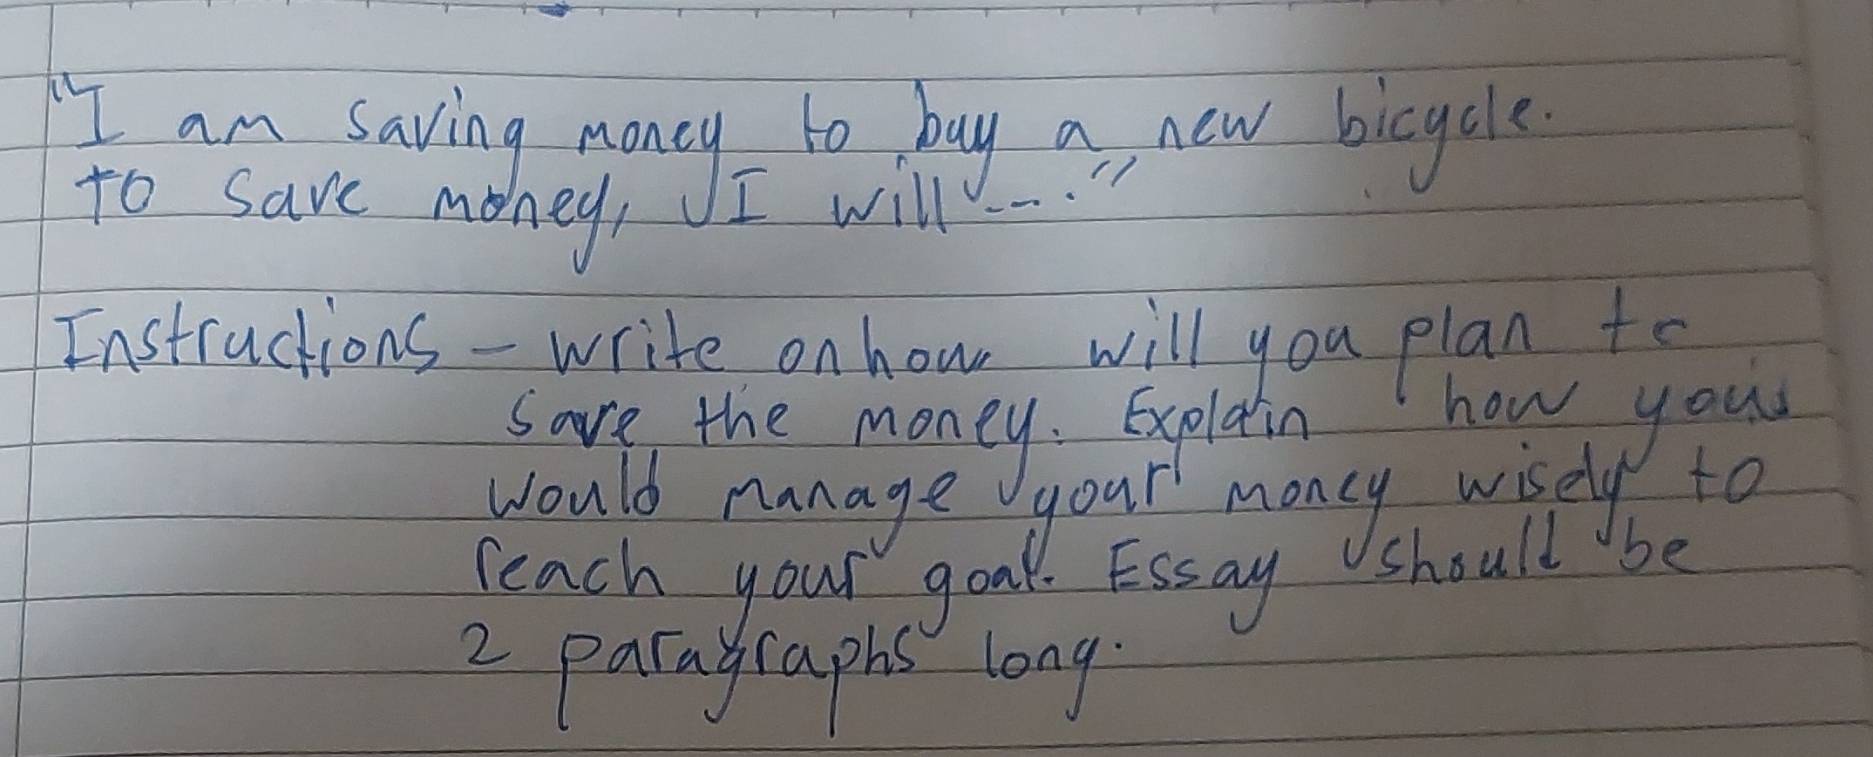 "I am saving money to buy a new bicycle.
to save money, I will ---."
Instructions - write on how will you plan to
save the money. Explain how you
would manage your money wisely to
reach your goal. Essay should be
2 paragraphs long.